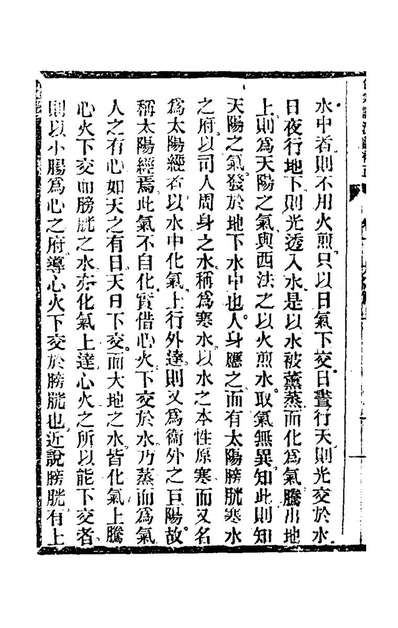 水中者則不用火煎只以日氣下交日晝行天則光交於水
日夜行地下則光透入水是以水被薰蒸而化爲氣騰出地
上則爲天陽之氣與西法之以火煎水取氣無異知此則知
天陽之氣發於地下水中也人身應之而有太陽膀胱寒水
之府以司人周身之水稱爲寒水以水之本性原寒而又名
爲太陽經者以水中化氣上行外達則又爲衛外之巨陽故
稱太陽經焉此氣不自化實借心火下交於水乃蒸而爲氣
人之有心如天之有日天日下交而大地之水皆化氣上騰
心火下交而膀胱之水亦化氣上達心火之所以能下交者
則以小腸爲心之府導心火下交於膀胱也近說膀胱有上